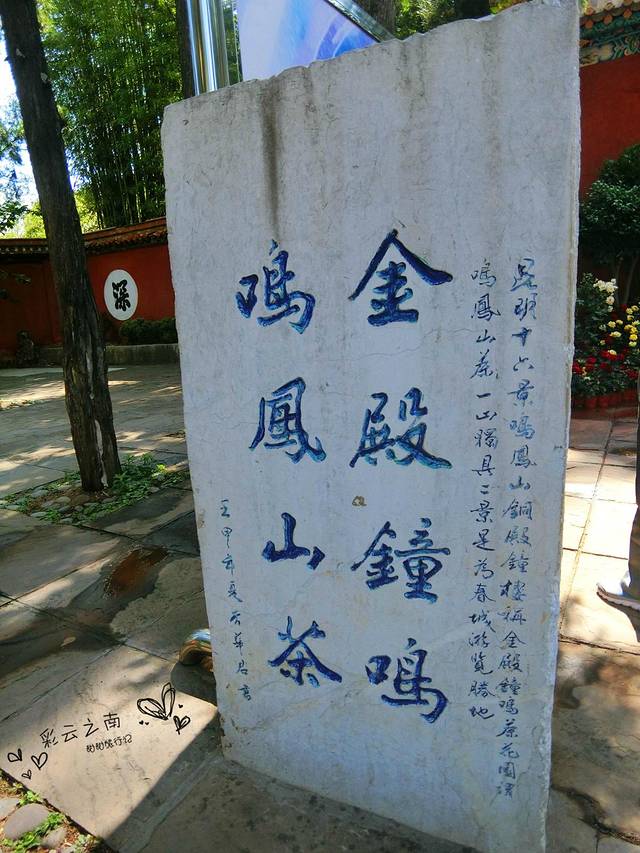 昆明十六景鳴鳳山銅殿鐘樓稱金殿鐘鳴茶花園謂
鳴鳳山茶一山獨具二景是為春城游覽勝地
金殿鐘鳴
鳴鳳山茶
壬申年夏華君書
深
彩云之南
旅行记